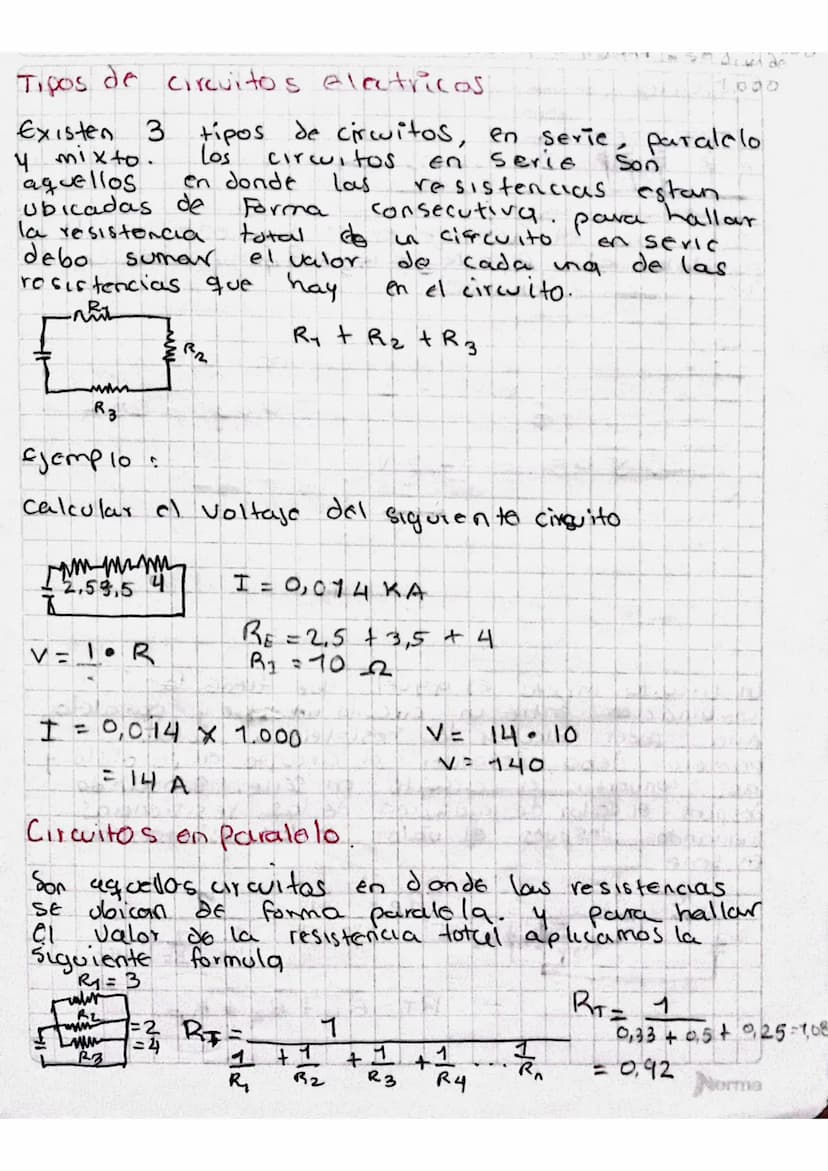 Tipos de circuitos electricos
1.000
Existen 3 tipos de circuitos, en serie, paralelo
y mixto. Los circuitos en serie son
aquellos en donde las resistencias estan
ubicadas de forma consecutiva. para hallar
la resistencia total de un circuito en serie
debo sumar el valor de cada una de las
resistencias que hay en el circuito.
R1
R2
R3
R1 + R2 + R3
Ejemplo :
calcular el voltaje del siguiente circuito
2,5 3,5 4
I = 0,014 KA
RE = 2,5 + 3,5 + 4
V = I • R
R1 = 10 Ω
I = 0,014 x 1.000
= 14 A
V = 14 • 10
V = 140
Circuitos en paralelo.
Son aquellos circuitos en donde las resistencias
se ubican de forma paralela. y para hallar
el valor de la resistencia total aplicamos la
siguiente formula
R1 = 3
R2 = 2
R3 = 4
RT = 1 / 1/R1 + 1/R2 + 1/R3 + 1/R4 ... 1/Rn
RT = 1 / 0,33 + 0,5 + 0,25 = 1,08
= 0,92
Norma